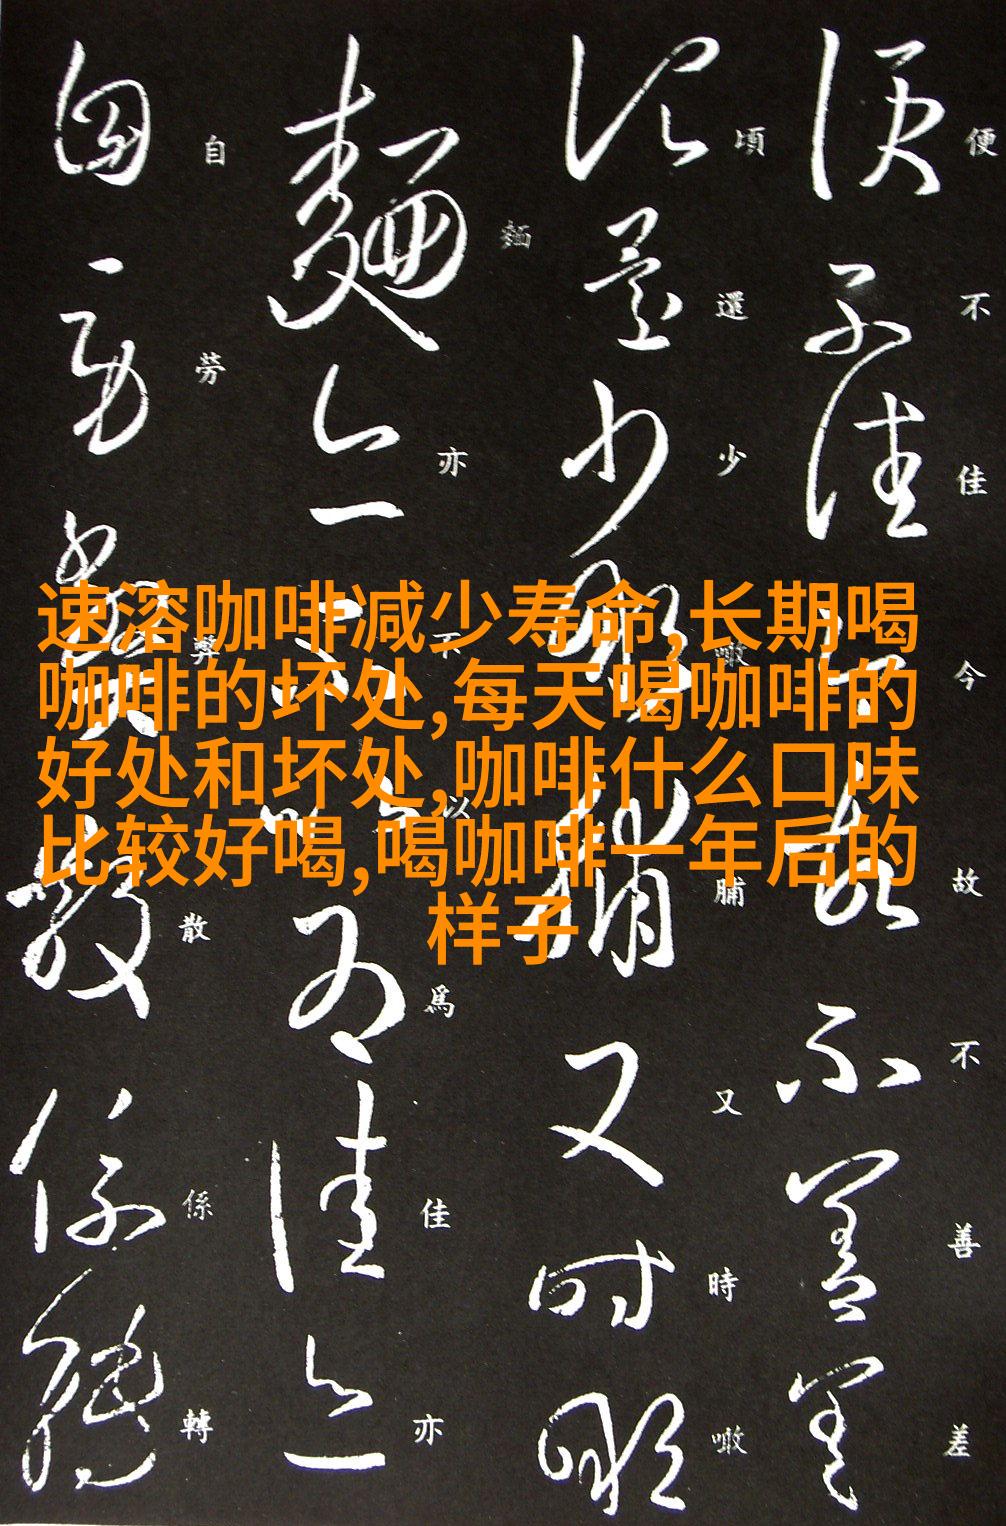 速溶咖啡减少寿命,长期喝
咖啡的坏处,每天喝咖啡的
好处和坏处,咖啡什么口味
比较好喝,喝咖啡一年后的
样子
便不佳今故不善差
頃還少噉脯又時噉
麵亦不以爲佳亦
自勞弊散係轉